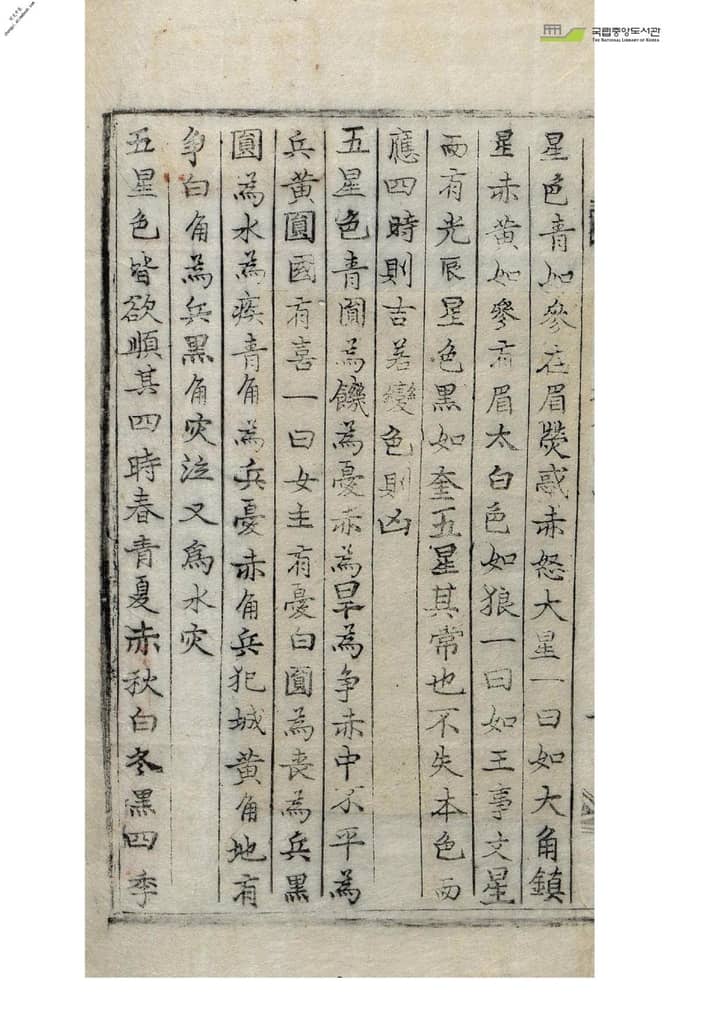 국립중앙도서관
THE NATIONAL LIBRARY OF KOREA
星色青如參左眉熒惑赤怒大星一曰如大角鎮
星赤黃如參右眉太白色如狼一曰如王事文星
而有光辰星色黑如奎五星其常也不失本色而
應四時則吉若變色則凶
五星色青圓為饑為憂赤為旱為爭赤中不平為
兵黃圓國有喜一曰女主有憂白圓為喪為兵黑
圓為水為疾青角為兵憂赤角兵犯城黃角地有
爭白角為兵黑角灾泣又為水灾
五星色皆欲順其四時春青夏赤秋白冬黑四季